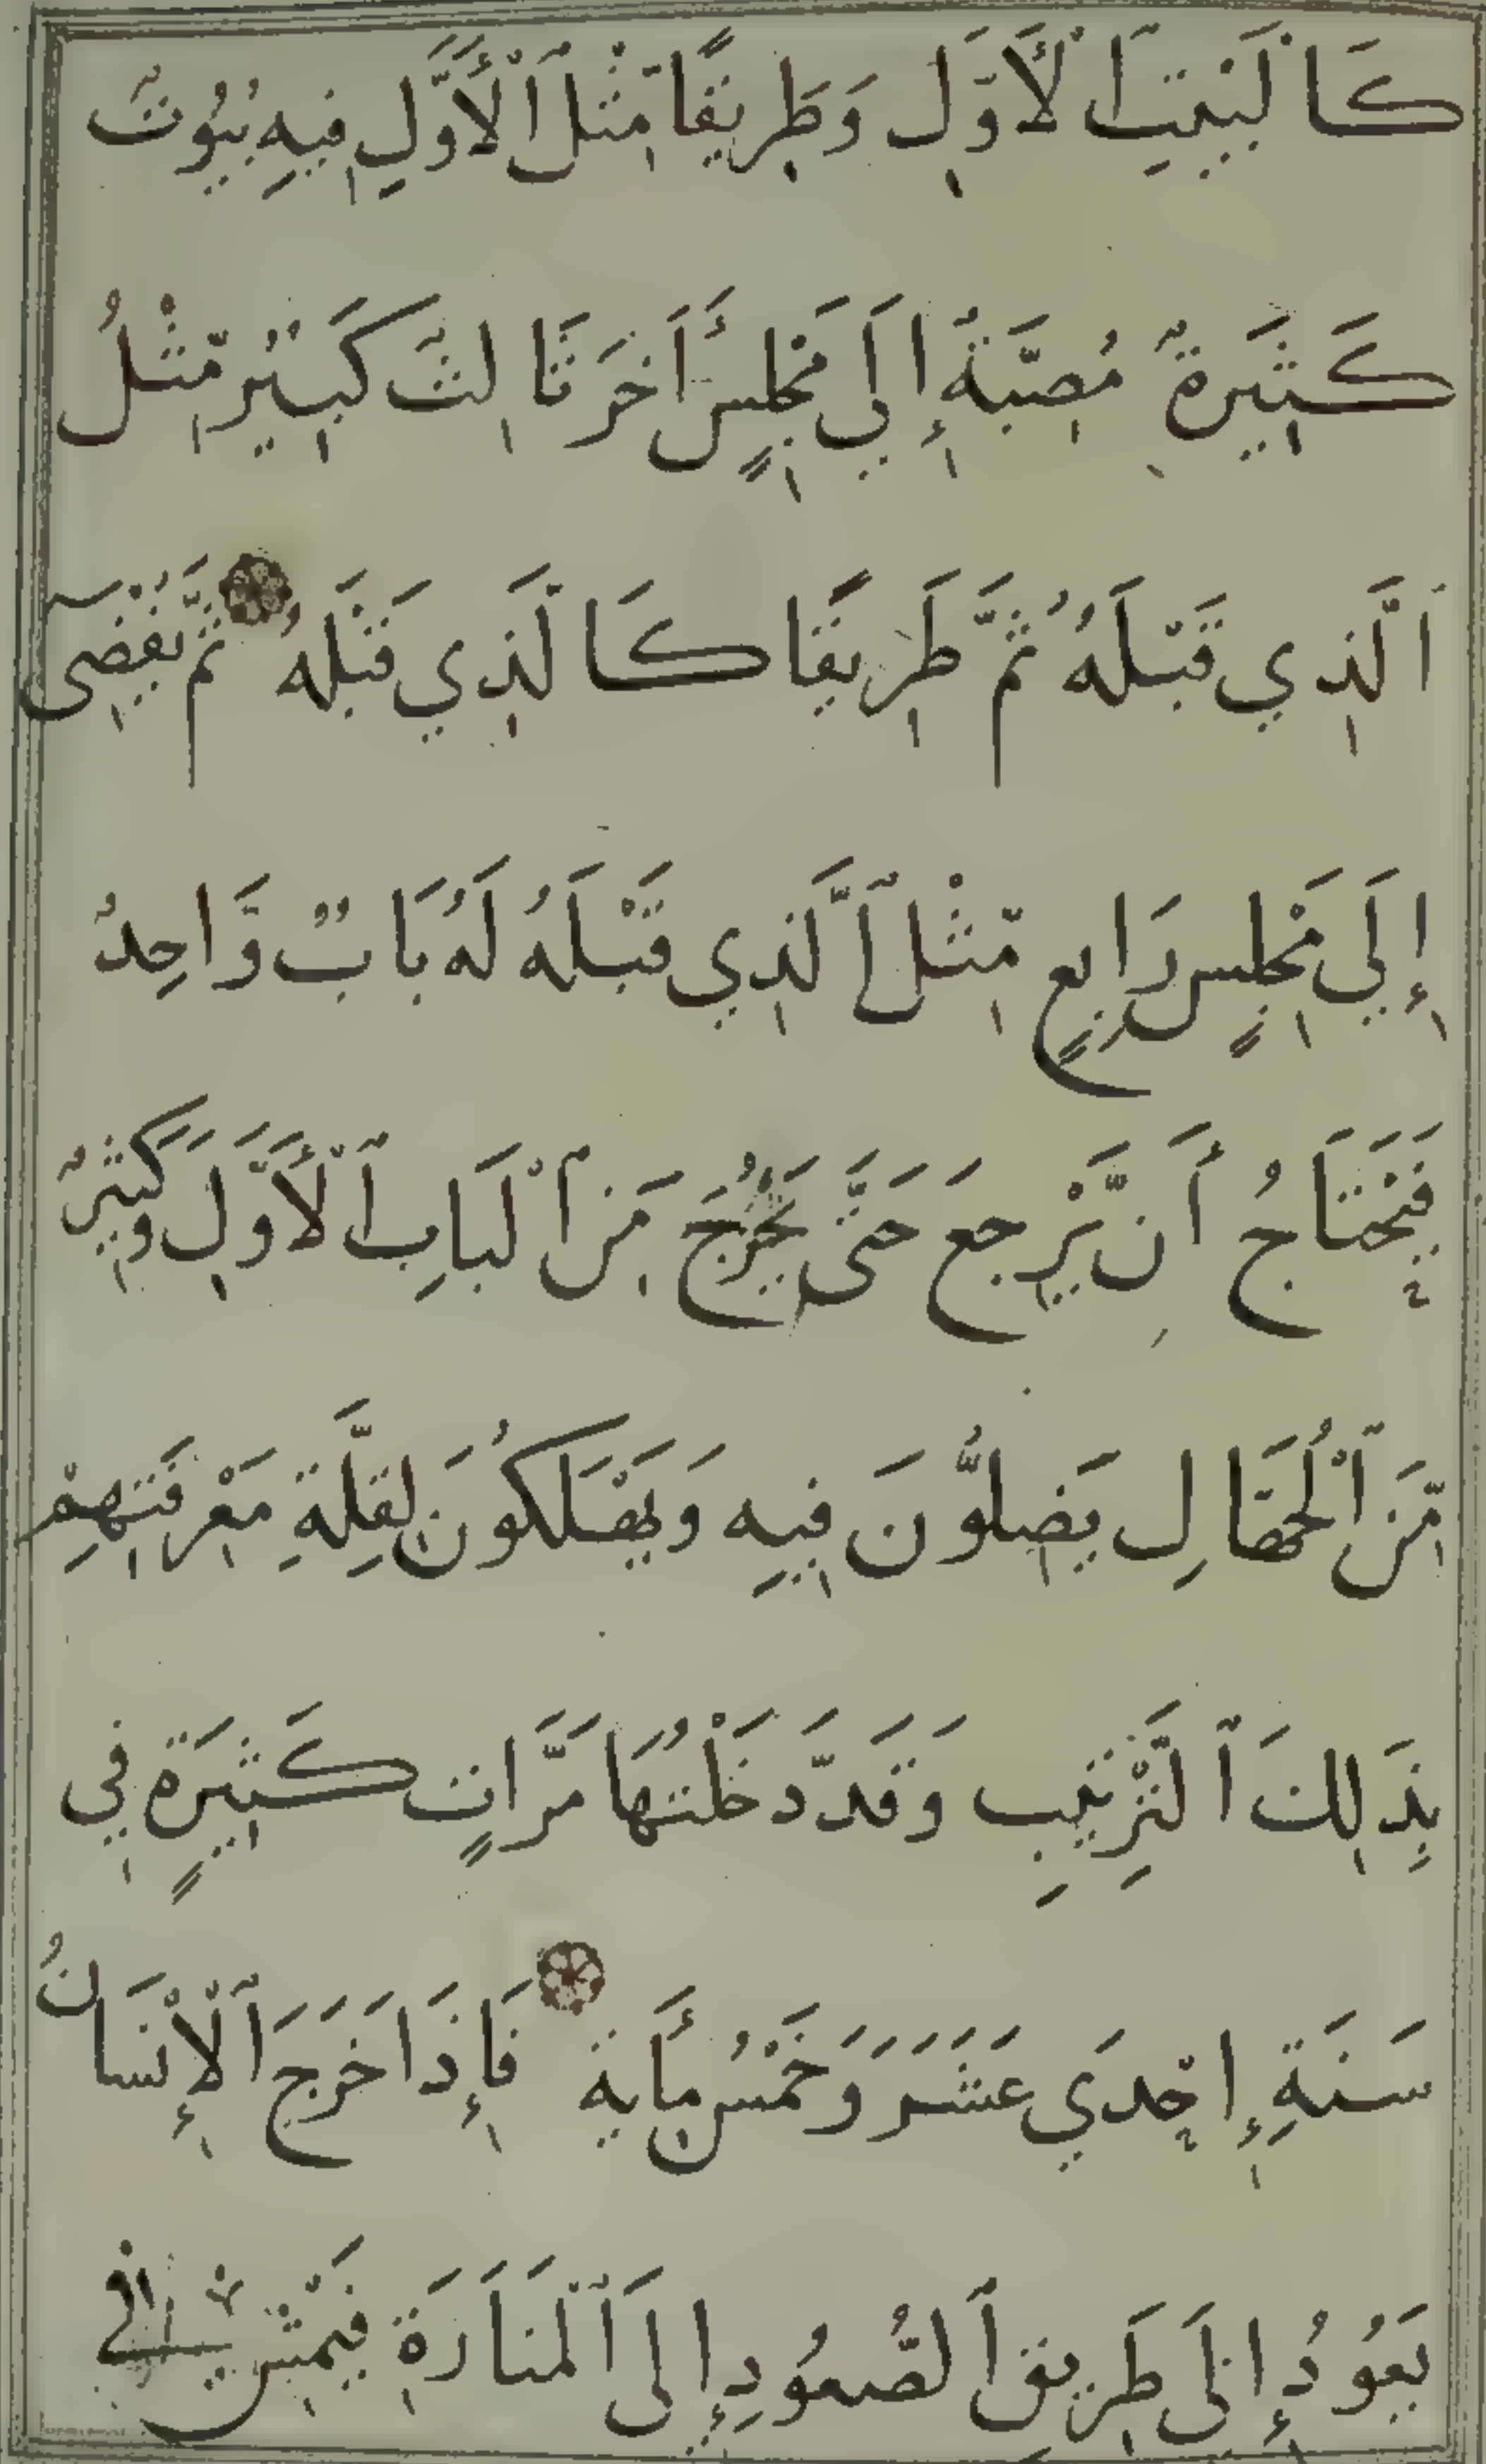 كَالْبَيْتِ الْأَوَّلِ وَطَرِيقًا مِّثْلَ ٱلْأَوَّلِ فِيهِ بُيُوتٌ
كَثِيرَةٌ مُصَبَّةٌ إِلَي مَجْلِسٍ أَخَرَ ثَالِثَ كَبِيْرٍ مِّثْلُ
اَلَّذِي قَبْلَهُ ثُمَّ طَرِيقًا كَالَّذِي قَبْلَهُ ثُمَّ يُفْضَى
إِلَي مَجْلِسٍ رَابِعٍ مِّثْلَ اَلَّذِي قَبْلَهُ لَهُ بَابٌ وَّاحِدٌ
فَيَحْتَاجُ أَن يَّرْجعَ حَتَّى يَخْرُجَ مِنَ ٱلْبَابِ ٱلْأَوَّلِ وَكَثِيرٌ
مِّنَ ٱلْجُهَّالِ يَضِلُّونَ فِيهِ وَيَهْلَكُونَ لِقِلَّةِ مَعْرِفَتِهِمْ
بِذَلِكَ ٱلتَّرْتِيبِ وَقَد دَّخَلْتُهَا مَرَّاتٍ كَثِيرَةٍ فِي
سَنَةِ إِحْدَي عَشَرَ وَخَمْسُ مِأَيَة فَإِذَا خَرَجَ ٱلْإِنْسَانُ
يَعُودُ إِلَى طَرِيقِ ٱلصُّعُودِ إِلَى ٱلْمَنَارَةِ فَيَمْشِي فِي